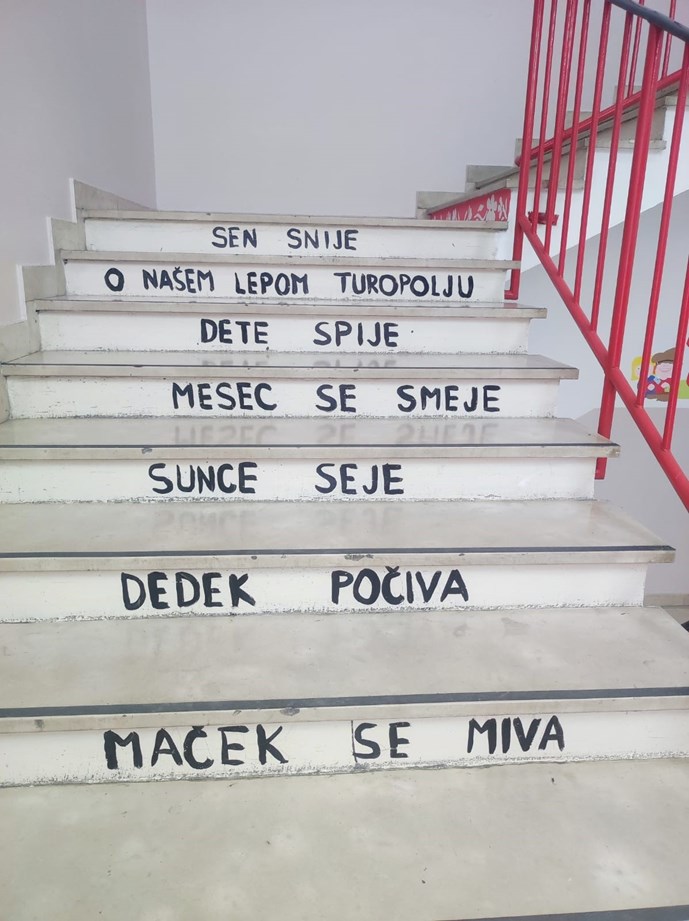 SEN SNIJE
O NAŠEM LEPOM TUROPOLJU
DETE SPIJE
MESEC SE SMEJE
SUNCE SEJE
DEDEK POČIVA
MAČEK SE MIVA